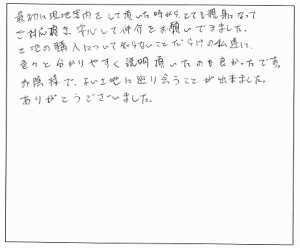 最初に現地案内をして頂いた時から、とても親身になって
ご対応頂き、安心して仲介をお願いできました。
土地の購入について知らないことだらけの私達に、
色々と分かりやすく説明頂いたのも良かったです。
お陰様で、よい土地に巡り会うことが出来ました。
ありがとうございました。